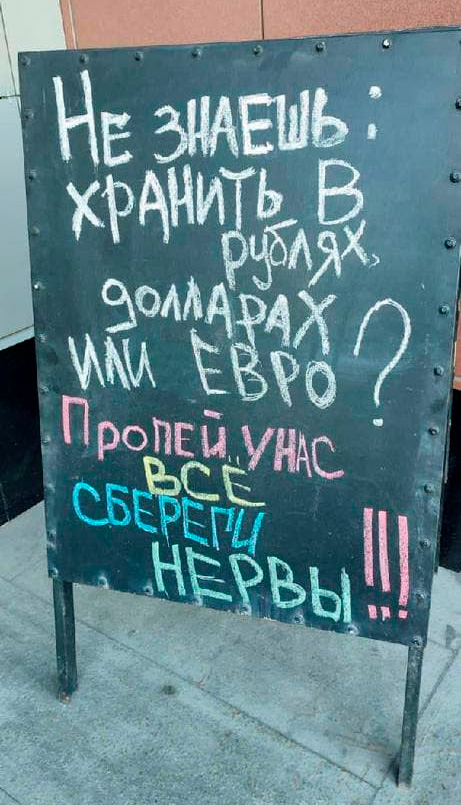 Не знаешь:
хранить в
рублях,
долларах
или евро?
Пропей у нас
всё
сбереги
нервы!!!